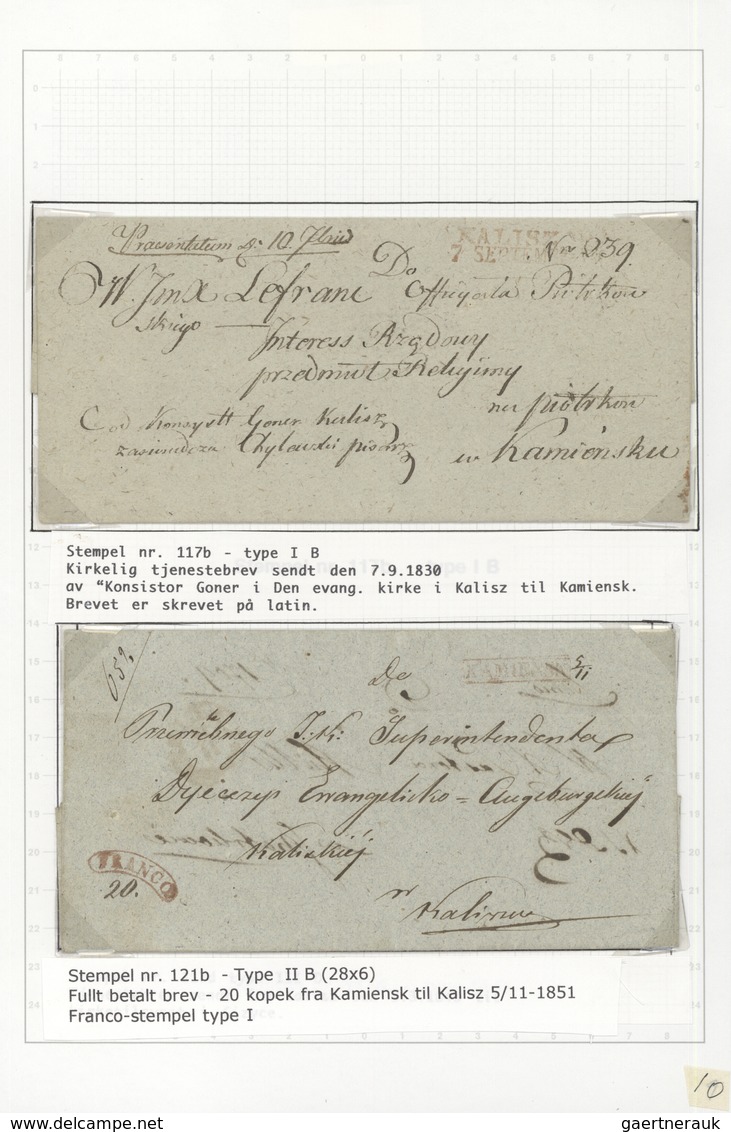 Praesentatum d. 10.
KALISZ
7 SEPTEM
Nr 239.
Do
W. Jmx Lefranc Officyała Piotrkow
skiego
Interess Rządowy
przedmiot Religijny
Kalisz
na Piotrków
pisarz
w Kamieńsku
Stempel nr. 117b - type I B
Kirkelig tjenestebrev sendt den 7.9.1830
av “Konsistor Goner i Den evang. kirke i Kalisz til Kamiensk.
Brevet er skrevet på latin.
KAMIENSK 5/11
Do
Przewielebnego J: K: Superintendenta
Dyecezyi Ewangelicko = Augsburgskiéj
Kaliskiéj
FRANCO
20.
w Kaliszu
Stempel nr. 121b - Type II B (28x6)
Fullt betalt brev - 20 kopek fra Kamiensk til Kalisz 5/11-1851
Franco-stempel type I
10
www.delcampe.net
gaertnerauk